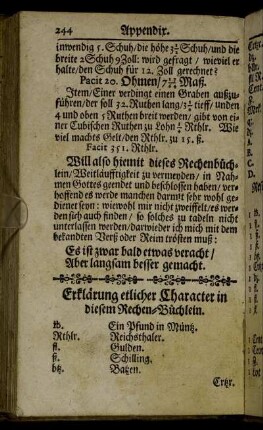 244 Appendix.
inwendig 5. Schuh/die höhe 3½ Schuh/und die
breite 2 Schuh 9 Zoll: wird gefragt / wieviel er
halte/den Schuh für 12. Zoll gerechnet?
Facit 20. Ohmen/ Maß.
Item/Einer verdingt einen Graben außzu-
führen/der soll 32. Ruthen lang/3½ tieff/unden
4 und oben 5 Ruthen breit werden/gibt von ei-
ner Cubischen Ruthen zu Lohn ½ Rthlr. Wie
viel machts Gelt/den Rthlr. zu 15. ß.
Facit 351. Rthlr.
Will also hiemit dieses Rechenbüch-
lein/Weitläufftigkeit zu vermeyden/in Nah-
men Gottes geendet und beschlossen haben/ver-
hoffend es werde manchen darmit sehr wohl ge-
dienet seyn: wiewohl mir nicht zweiffelt/es wer-
den sich auch finden/so solches zu tadeln nicht
unterlassen werden/darwieder ich mich mit dem
bekandten Verß oder Reim trösten muß:
Es ist zwar bald etwas veracht/
Aber langsam besser gemacht.
Erklärung etlicher Character in
diesem Rechen-Büchlein.
℔. Ein Pfund in Müntz.
Rthlr. Reichsthaler.
fl. Gulden.
ß. Schilling.
btz. Batzen.
Crtzr.